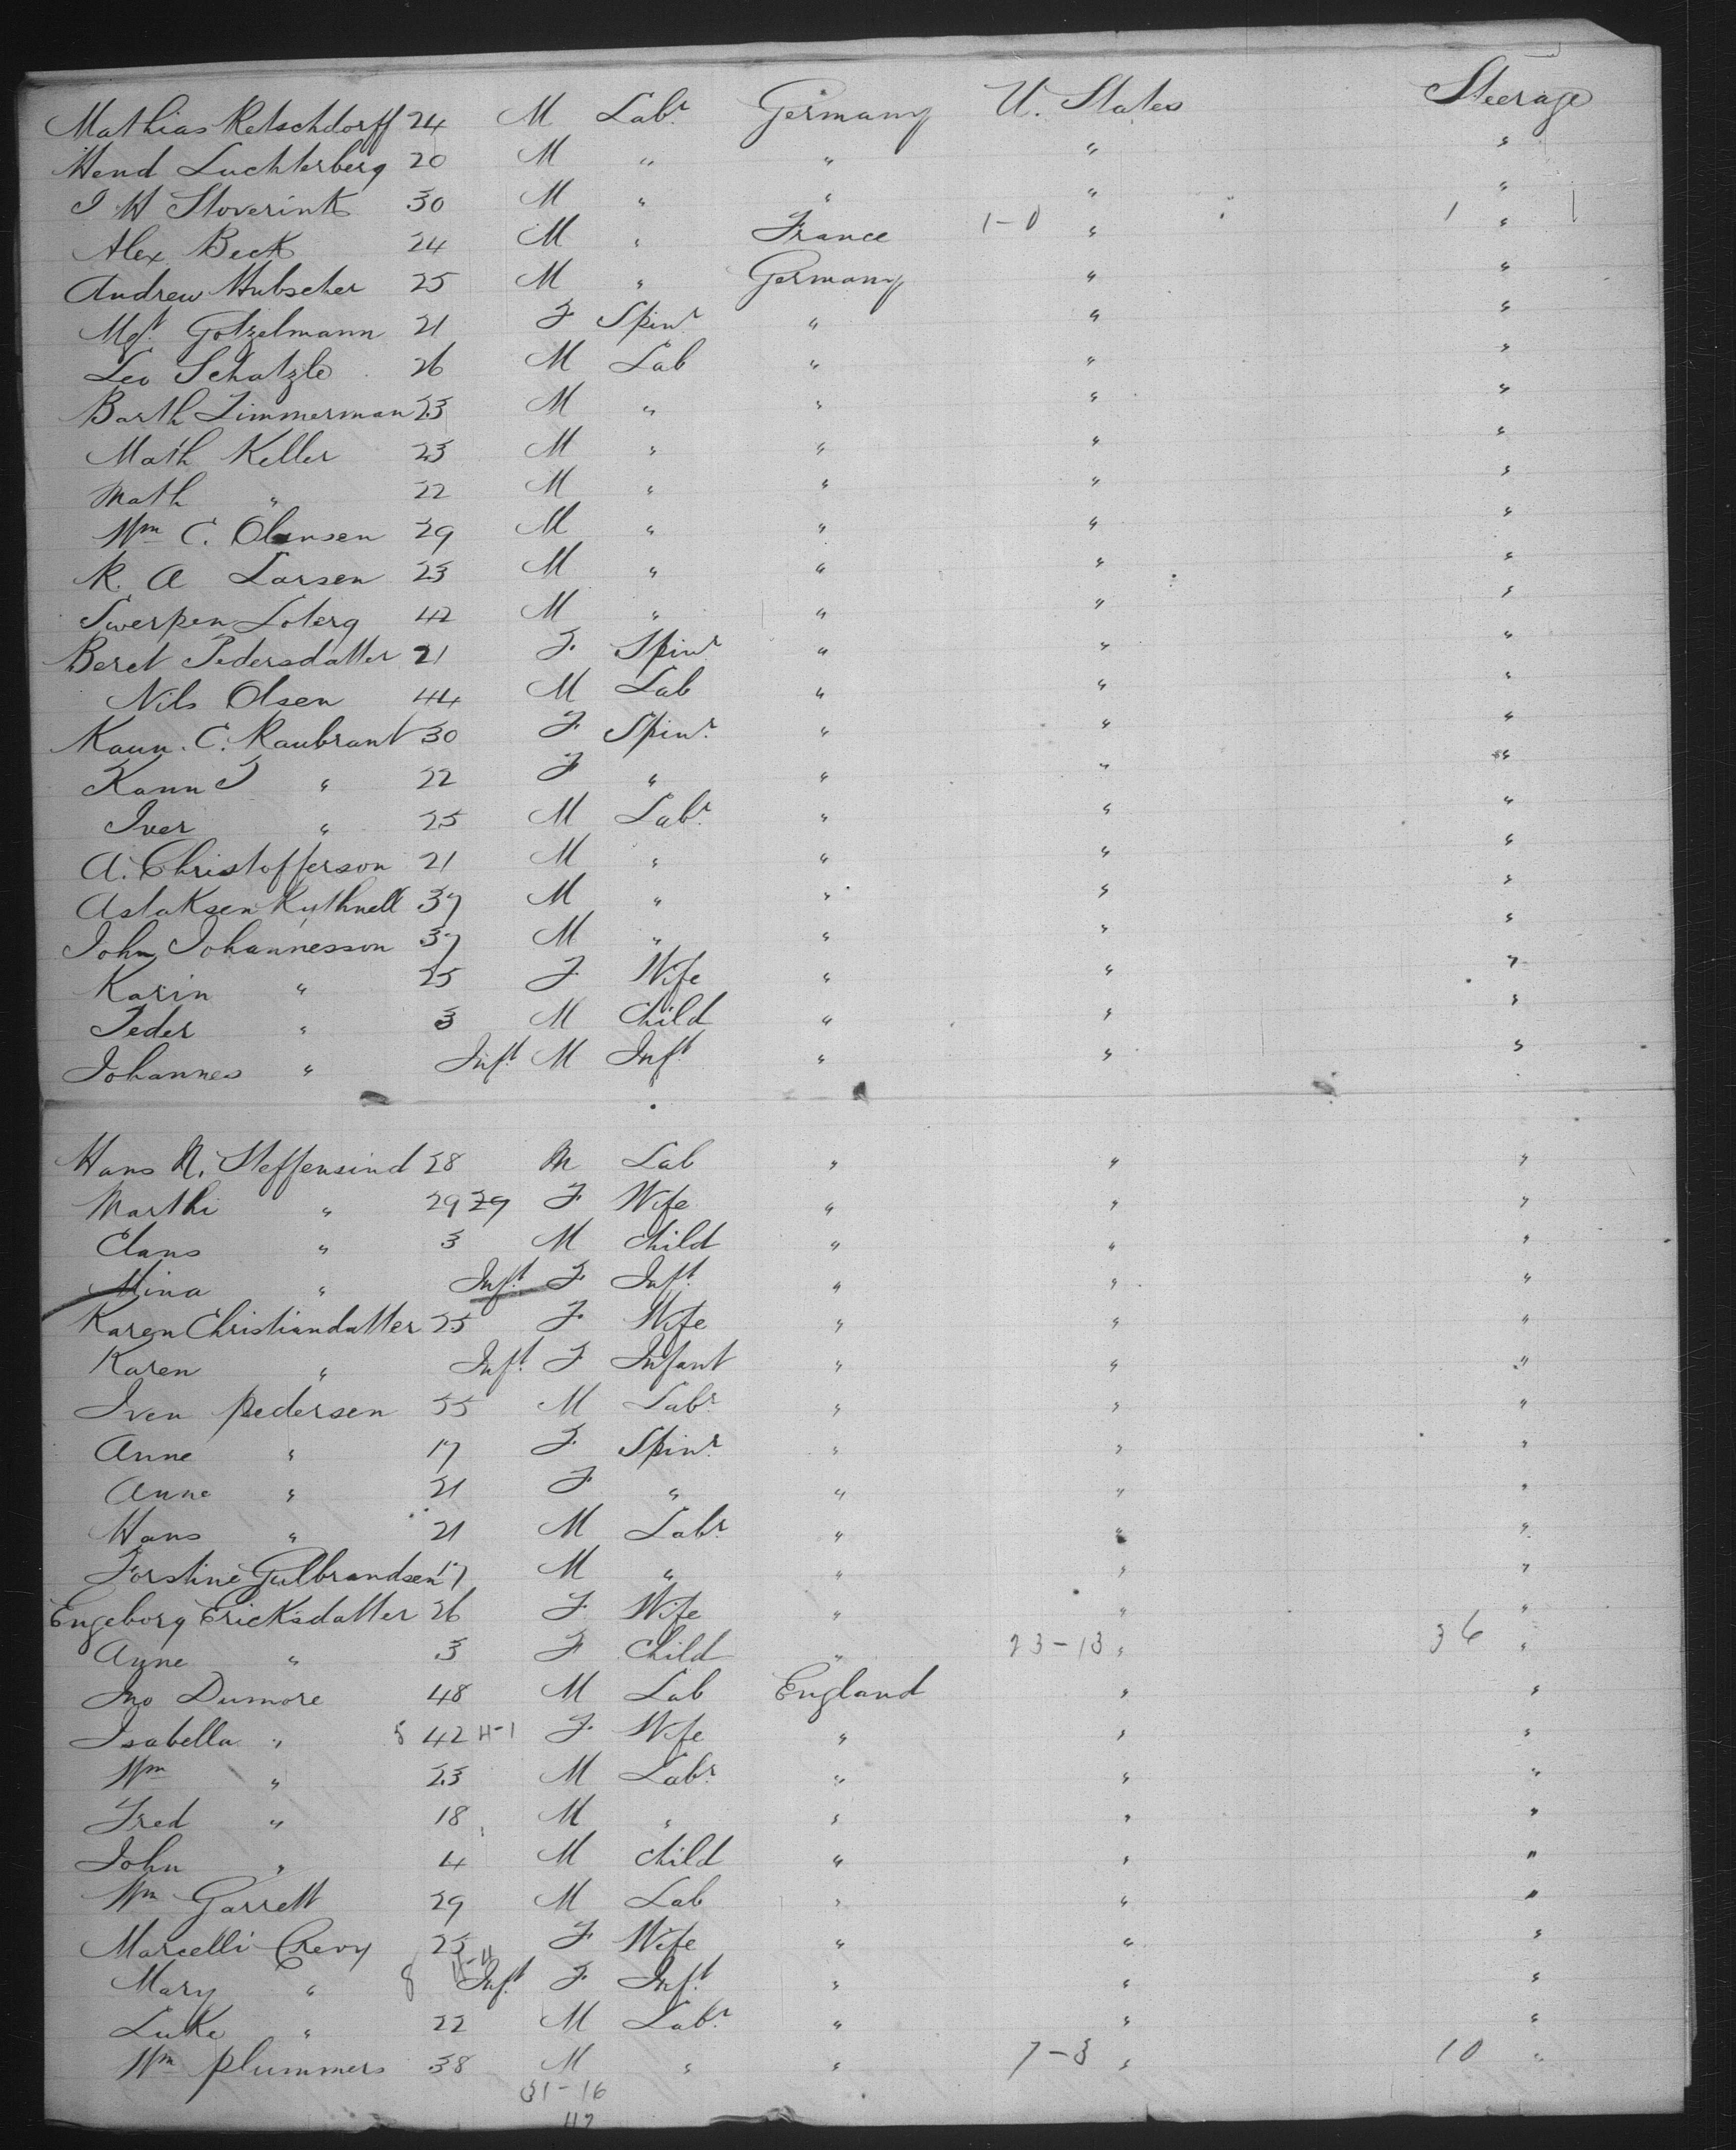 Mathias Retschdorff 24 M Labr Germany U. States Steerage
Wend Luchterberg 20 M " " " "
J H Stoverink 30 M " " " "
Alex Beck 24 M " France 1-0 " 1 "
Andrew Hubscher 25 M " Germany " "
Mgt Gotzelmann 21 F Spinr " " "
Leo Schatzle 26 M Lab " " "
Barth Zimmerman 23 M " " " "
Math Keller 23 M " " " "
Math " 22 M " " " "
Wm C. Olensen 29 M " " " "
R. A Larsen 23 M " " " "
Swerpen Loterg 42 M " " " "
Beret Pedersdatter 21 F Spinr " " "
Nils Olsen 44 M Lab " " "
Kaun. C. Raubrant 30 F Spinr " " "
Kann T " 22 F " " " "
Iver " 25 M Labr " " "
A. Christofferson 21 M " " " "
Astaksen Kuthnell 37 M " " " "
John Johannesson 37 M " " " "
Karin " 25 F Wife " " "
Peder " 3 M Child " " "
Johannes " Inft M Inft " " "
Hans N. Steffensind 28 M Lab " " "
Marthi " 29 29 F Wife " " "
Elans " 3 M Child " " "
Mina " Inft F Inft " " "
Karen Christiandatter 25 F Wife " " "
Karen " Inft F Infant " " "
Iven Pedersen 55 M Labr " " "
Anne " 17 F Spinr " " "
Anne " 21 F " " " "
Hans " 21 M Labr " " "
Forstine Gulbrandsen 17 M " " " "
Engeborg Ericksdatter 26 F Wife " " "
Anne " 3 F Child " 23-13 " 36 "
Jno Dumore 48 M Lab England " "
Isabella " 42 F Wife " " "
Wm " 23 M Labr " " "
Fred " 18 M " " " "
John " 4 M Child " " "
Wm Garrett 29 M Lab " " "
Marcelli Crevy 25 F Wife " " "
Mary " 8 Inft F Inft " " "
Luke " 22 M Labr " " "
Wm Plummers 38 M " " 7-3 " 10 "
31-16
47